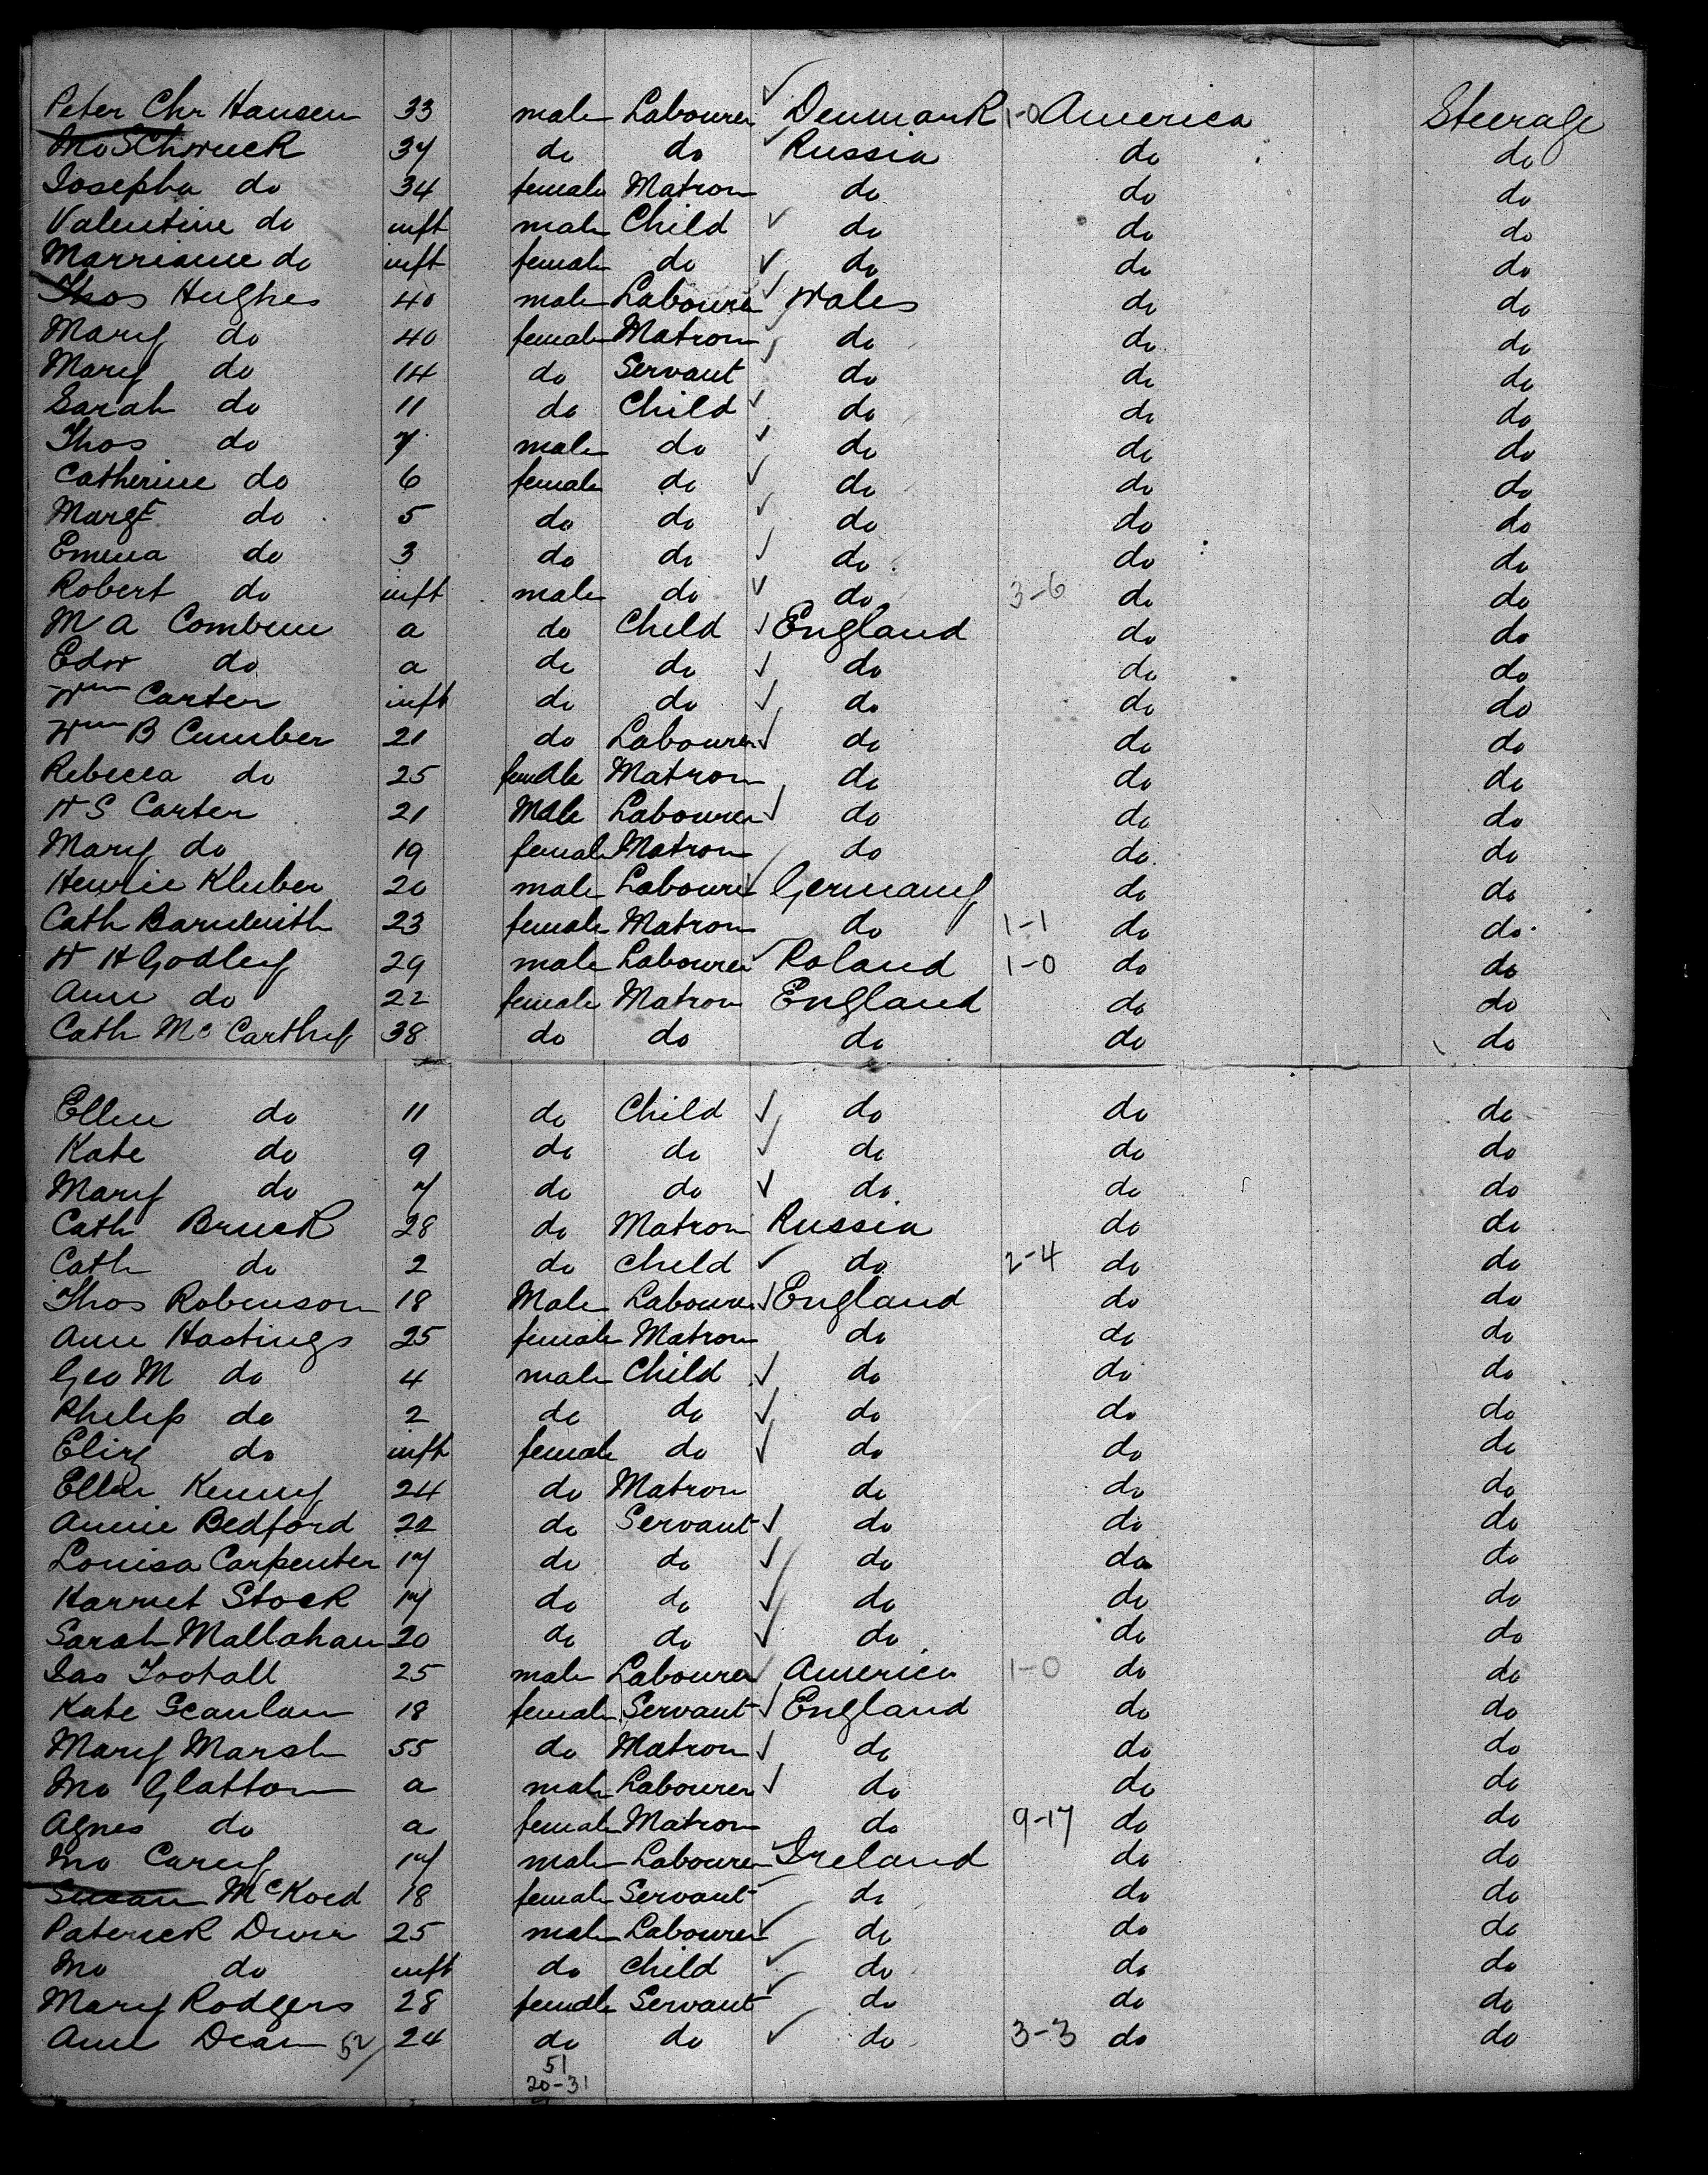 Peter Chr Hansen 33 male Labourer Denmark 1-0 America Steerage
Jno Schruck 37 do do Russia do do
Josepha do 34 female Matron do do do
Valentine do inft male Child do do do
Marrianne do inft female do do do do
Thos Hughes 40 male Labourer Wales do do
Mary do 40 female Matron do do do
Mary do 14 do Servant do do do
Sarah do 11 do Child do do do
Thos do 7 male do do do do
Catherine do 6 female do do do do
Margt do 5 do do do do do
Emma do 3 do do do do do
Robert do inft male do do 3-6 do do
M A Combene a do Child England do do
Edw do a do do do do do
Wm Carter inft do do do do do
Wm B Cumber 21 do Labourer do do do
Rebecca do 25 female Matron do do do
H S Carter 21 Male Labourer do do do
Mary do 19 female Matron do do do
Henrie Kluber 20 male Labourer Germany do do
Cath 23 female Matron do 1-1 do do
H H Godley 29 male Labourer Poland 1-0 do do
Ann do 22 female Matron England do do
Cath McCarthy 38 do do do do do
Ellen do 11 do Child do do do
Kate do 9 do do do do do
Mary do 7 do do do do do
Cath Bruck 28 do Matron Russia do do
Cath do 2 do Child do 2-4 do do
Thos Robinson 18 Male Labourer England do do
Ann Hastings 25 female Matron do do do
Geo M do 4 male Child do do do
Philip do 2 do do do do do
Eliz do inft female do do do do
Ellen Kenny 24 do Matron do do do
Annie Bedford 22 do Servant do do do
Louisa Carpenter 17 do do do do do
Harriet Stock 17 do do do do do
Sarah Mallahan 20 do do do do do
Jas Toohall 25 male Labourer America 1-0 do do
Kate Scanlan 18 female Servant England do do
Mary Marsh 55 do Matron do do do
Jno Glatton a male Labourer do do do
Agnes do a female Matron do 9-17 do do
Jno Carey 17 male Labourer Ireland do do
Susan McKoed 18 female Servant do do do
Paterick Dwier 25 male Labourer do do do
Jno do inft do Child do do do
Mary Rodgers 28 female Servant do do do
Ann Dean 52/ 24 do do do 3-3 do do
51
20-31